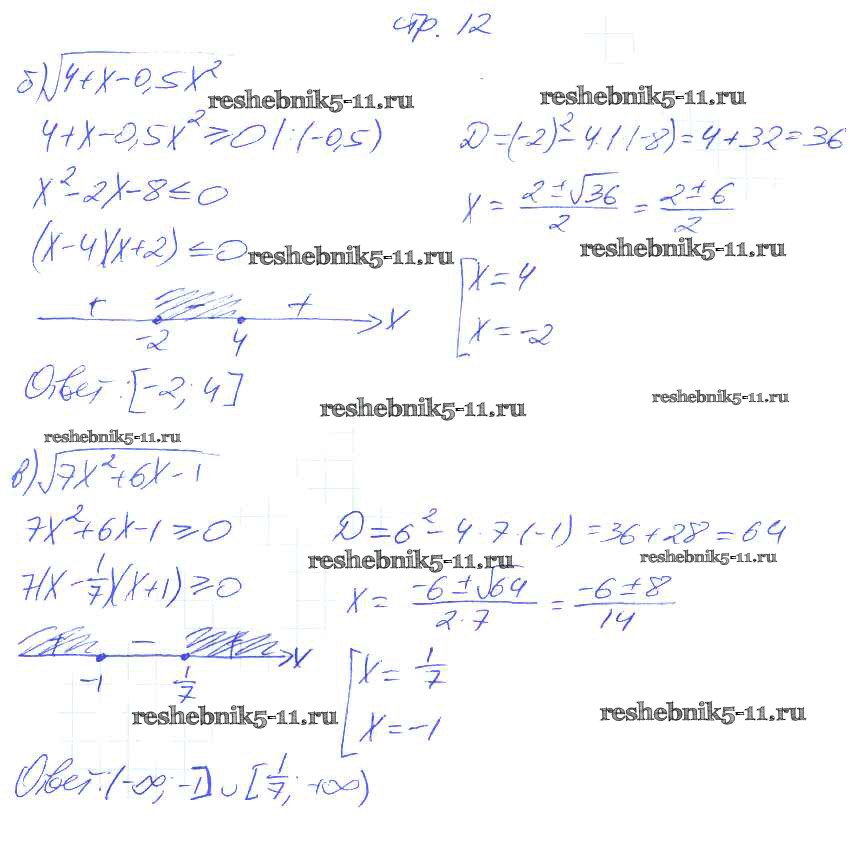 стр. 12
б) √(4+x-0,5x²)
reshebnik5-11.ru
reshebnik5-11.ru
4+x-0,5x² ≥ 0 |:(-0,5)
D=(-2)²-4·1·(-8)=4+32=36
x²-2x-8≤0
x = (2±√36)/2 = (2±6)/2
(x-4)(x+2)≤0
reshebnik5-11.ru
reshebnik5-11.ru
[x=4
x=-2
+ - + x
-2 4
Ответ: [-2; 4]
reshebnik5-11.ru
reshebnik5-11.ru
reshebnik5-11.ru
в) √(7x²+6x-1)
7x²+6x-1≥0
D=6²-4·7·(-1)=36+28=64
reshebnik5-11.ru
reshebnik5-11.ru
7(x-1/7)(x+1)≥0
x = (-6±√64)/(2·7) = (-6±8)/14
+ - + x
-1 1/7
[x=1/7
x=-1
reshebnik5-11.ru
reshebnik5-11.ru
Ответ: (-∞; -1] ∪ [1/7; +∞)